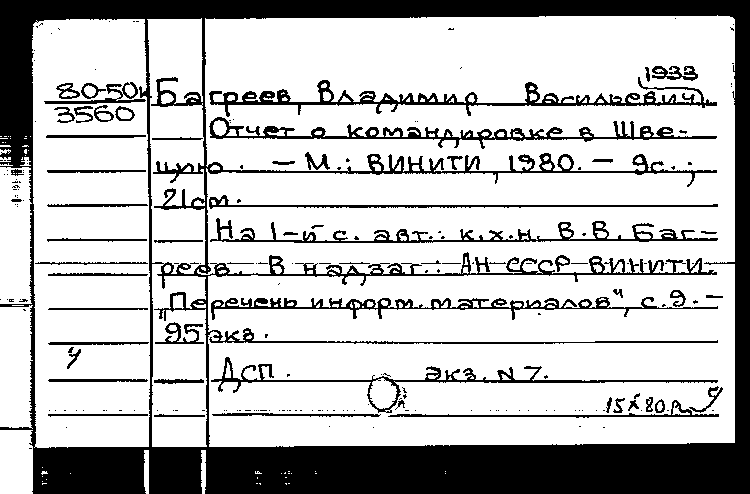 1933
80-50к Багреев, Владимир Васильевич.
3560 Отчет о командировке в Шве-
цию. - М.: ВИНИТИ, 1980. - 9с.;
21см.
На 1-й с. авт.: к.х.н. В.В. Баг-
реев. В надзаг.: АН СССР, ВИНИТИ.
"Перечень информ. материалов", с.9. -
95 экз.
ДСП. экз. N 7.
15 X 80